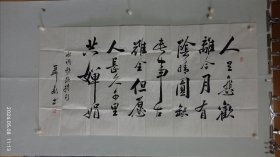 人有悲歡
離合月有
陰晴圓缺
此事古
難全但愿
人長久千里
共嬋娟